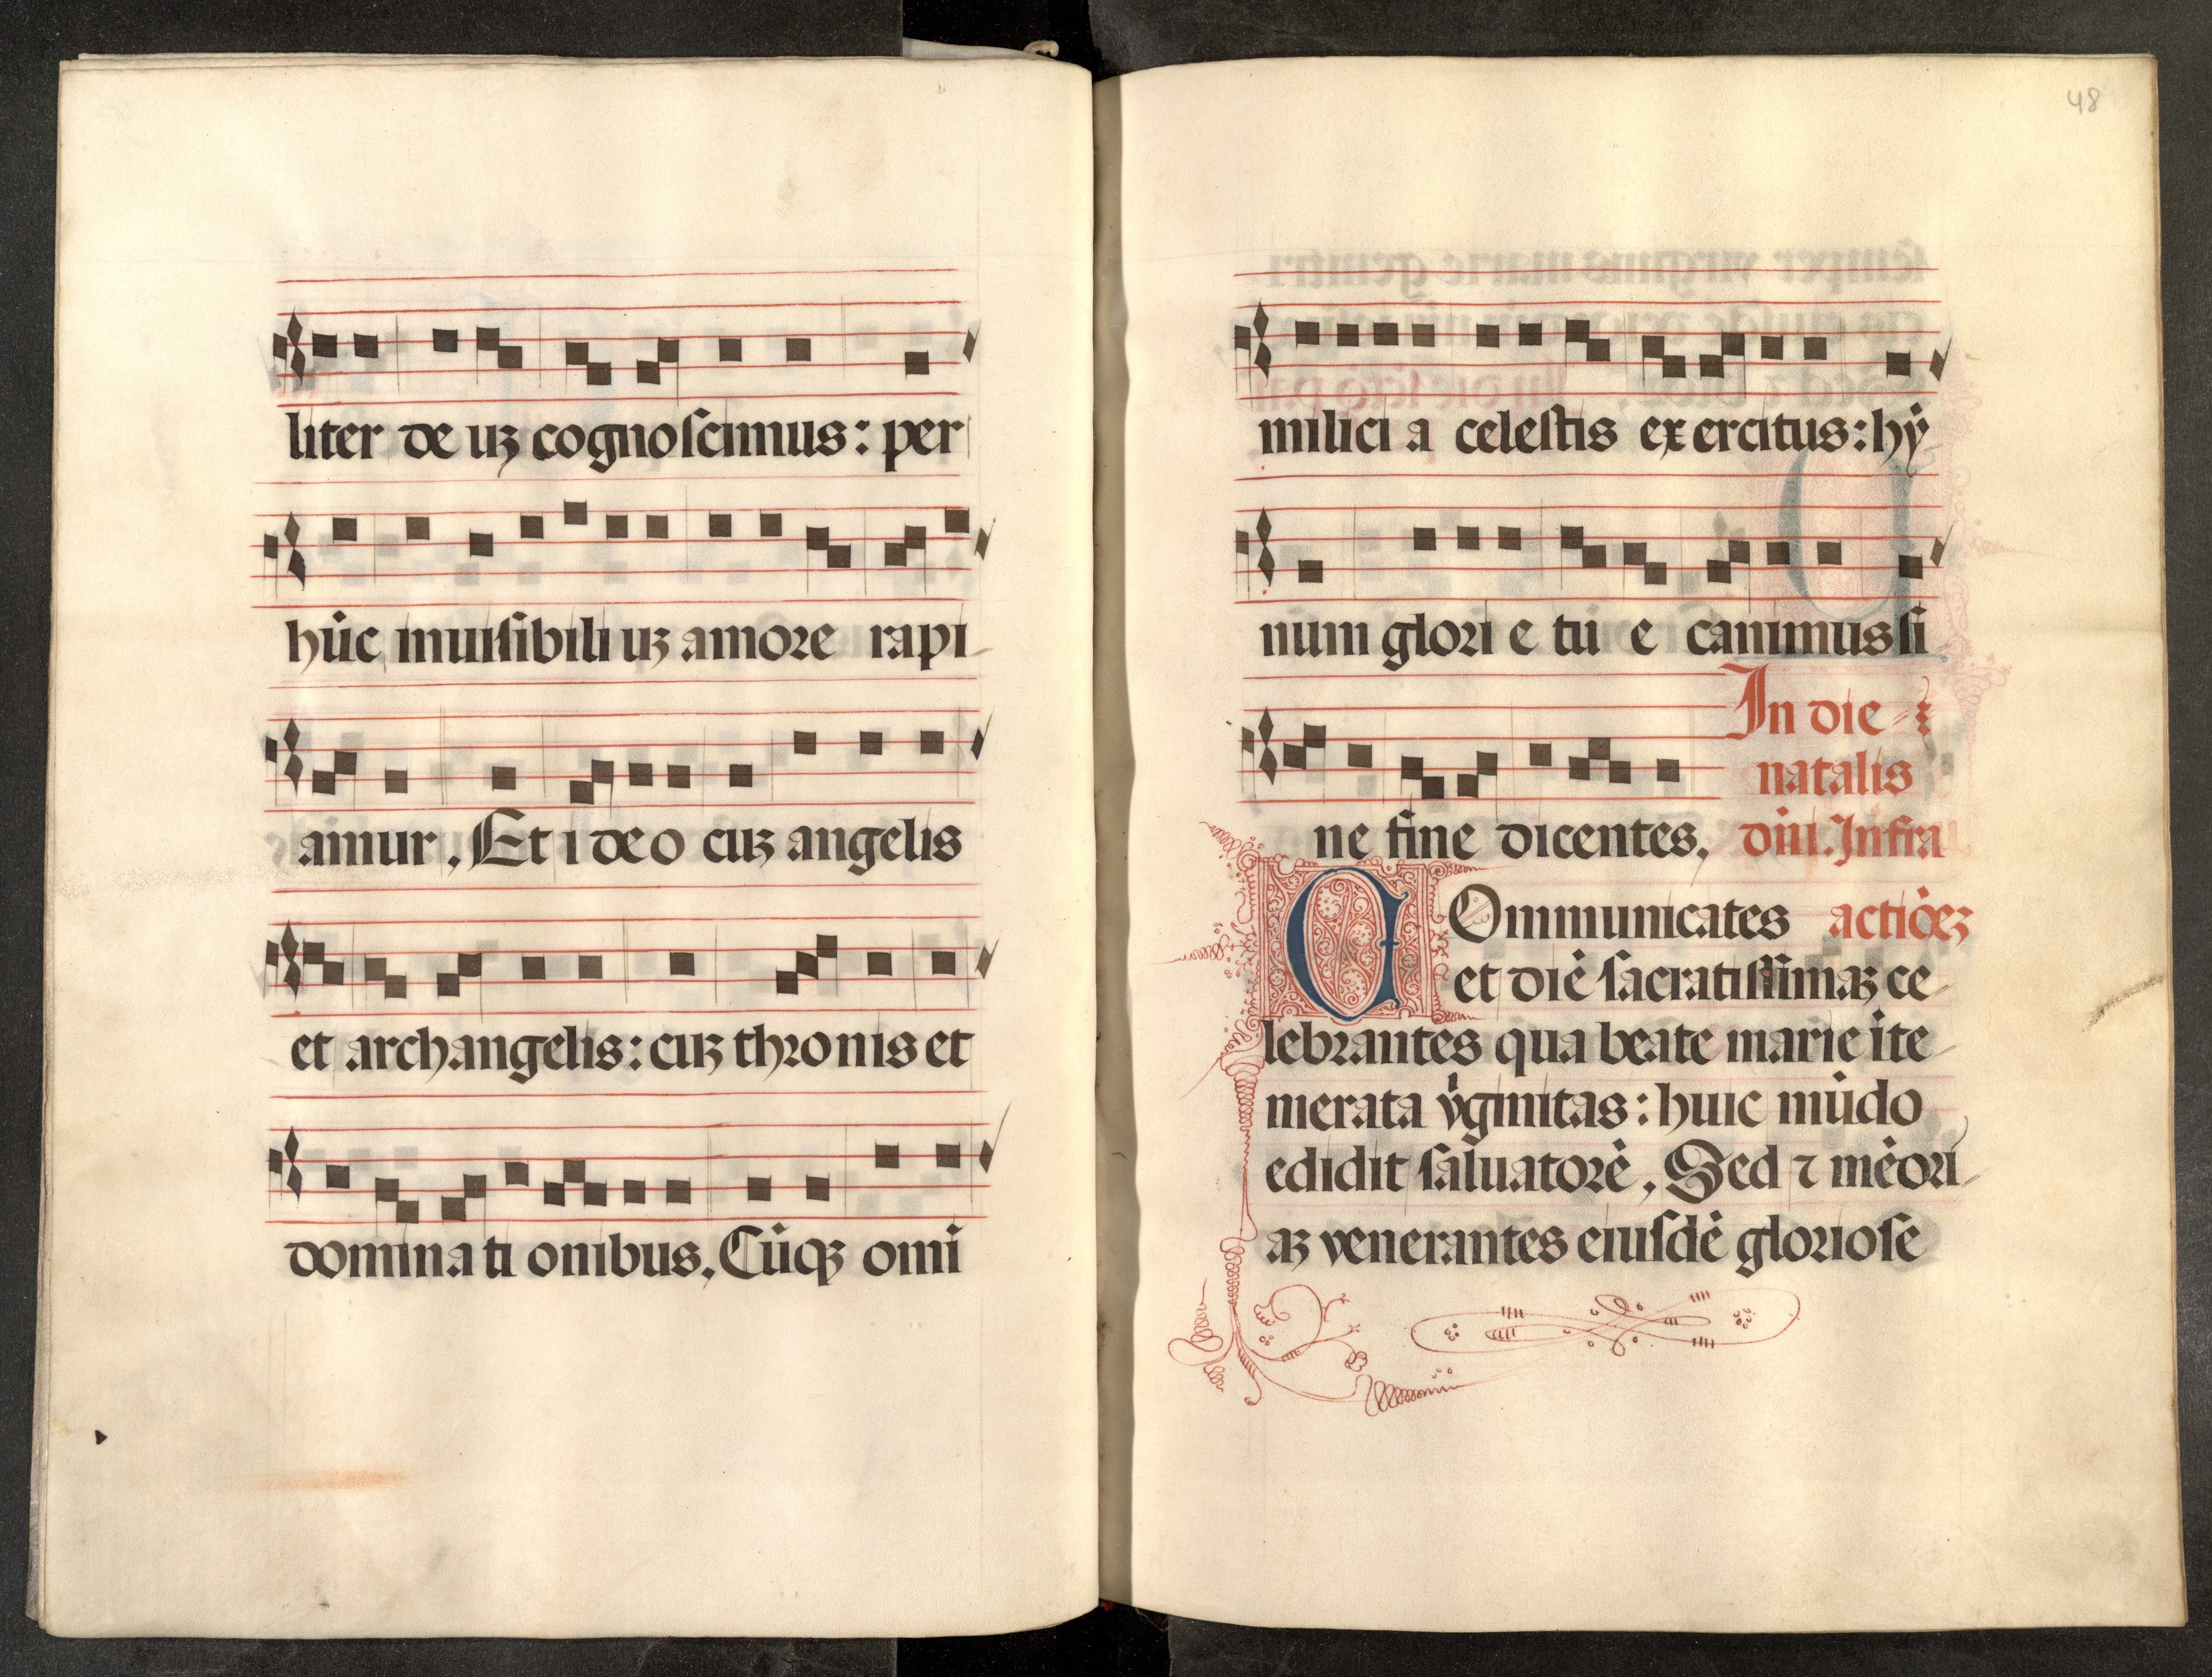 liter de uꝫ cognoſcimus: per
hūc inuiſibili uꝫ amore rapi
amur. Et i de o cuꝫ angelis
et archangelis: cuꝫ thꝛonis et
domina ti onibus. Cūqꝫ omi
48
milici a celeſtis ex ercitus: hẏ
num glori e tu e canimus ſi
In die
natalis
ne fine dicentes. dñi. Infra
COmmunicātes actiōeꝫ
et diē ſacratiſſimaꝫ ce
lebꝛantes qua beate marie īte
merata v̇ginitas: huic mūdo
edidit ſaluatoꝛē. Sed ⁊ mēoꝛi
aꝫ venerantes eiuſdē glorioſe